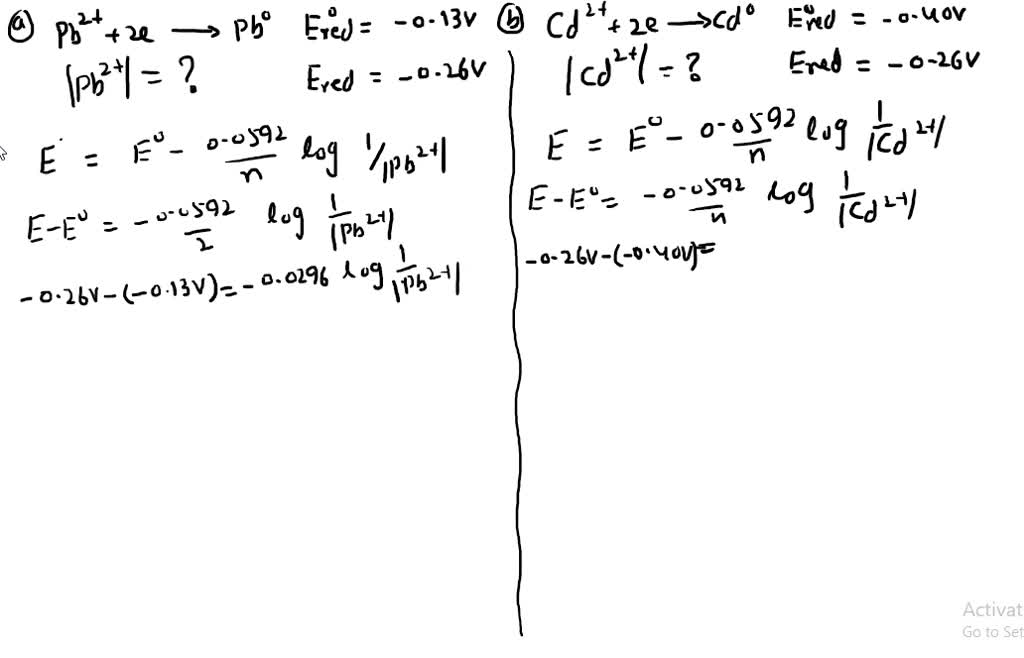 ⓐ Pb²⁺ + 2e ⟶ Pb⁰ E⁰red = -0.13V
|Pb²⁺| = ? Ered = -0.26V
E = E⁰ - 0.0592/n log 1/|Pb²⁺|
E-E⁰ = -0.0592/2 log 1/|Pb²⁺|
-0.26V-(-0.13V) = -0.0296 log 1/|Pb²⁺|
ⓑ Cd²⁺ + 2e ⟶ Cd⁰ E⁰red = -0.40V
|Cd²⁺| = ? Ered = -0.26V
E = E⁰ - 0.0592/n log 1/|Cd²⁺|
E-E⁰ = -0.0592/n log 1/|Cd²⁺|
-0.26V-(-0.40V) =
Activat
Go to Set